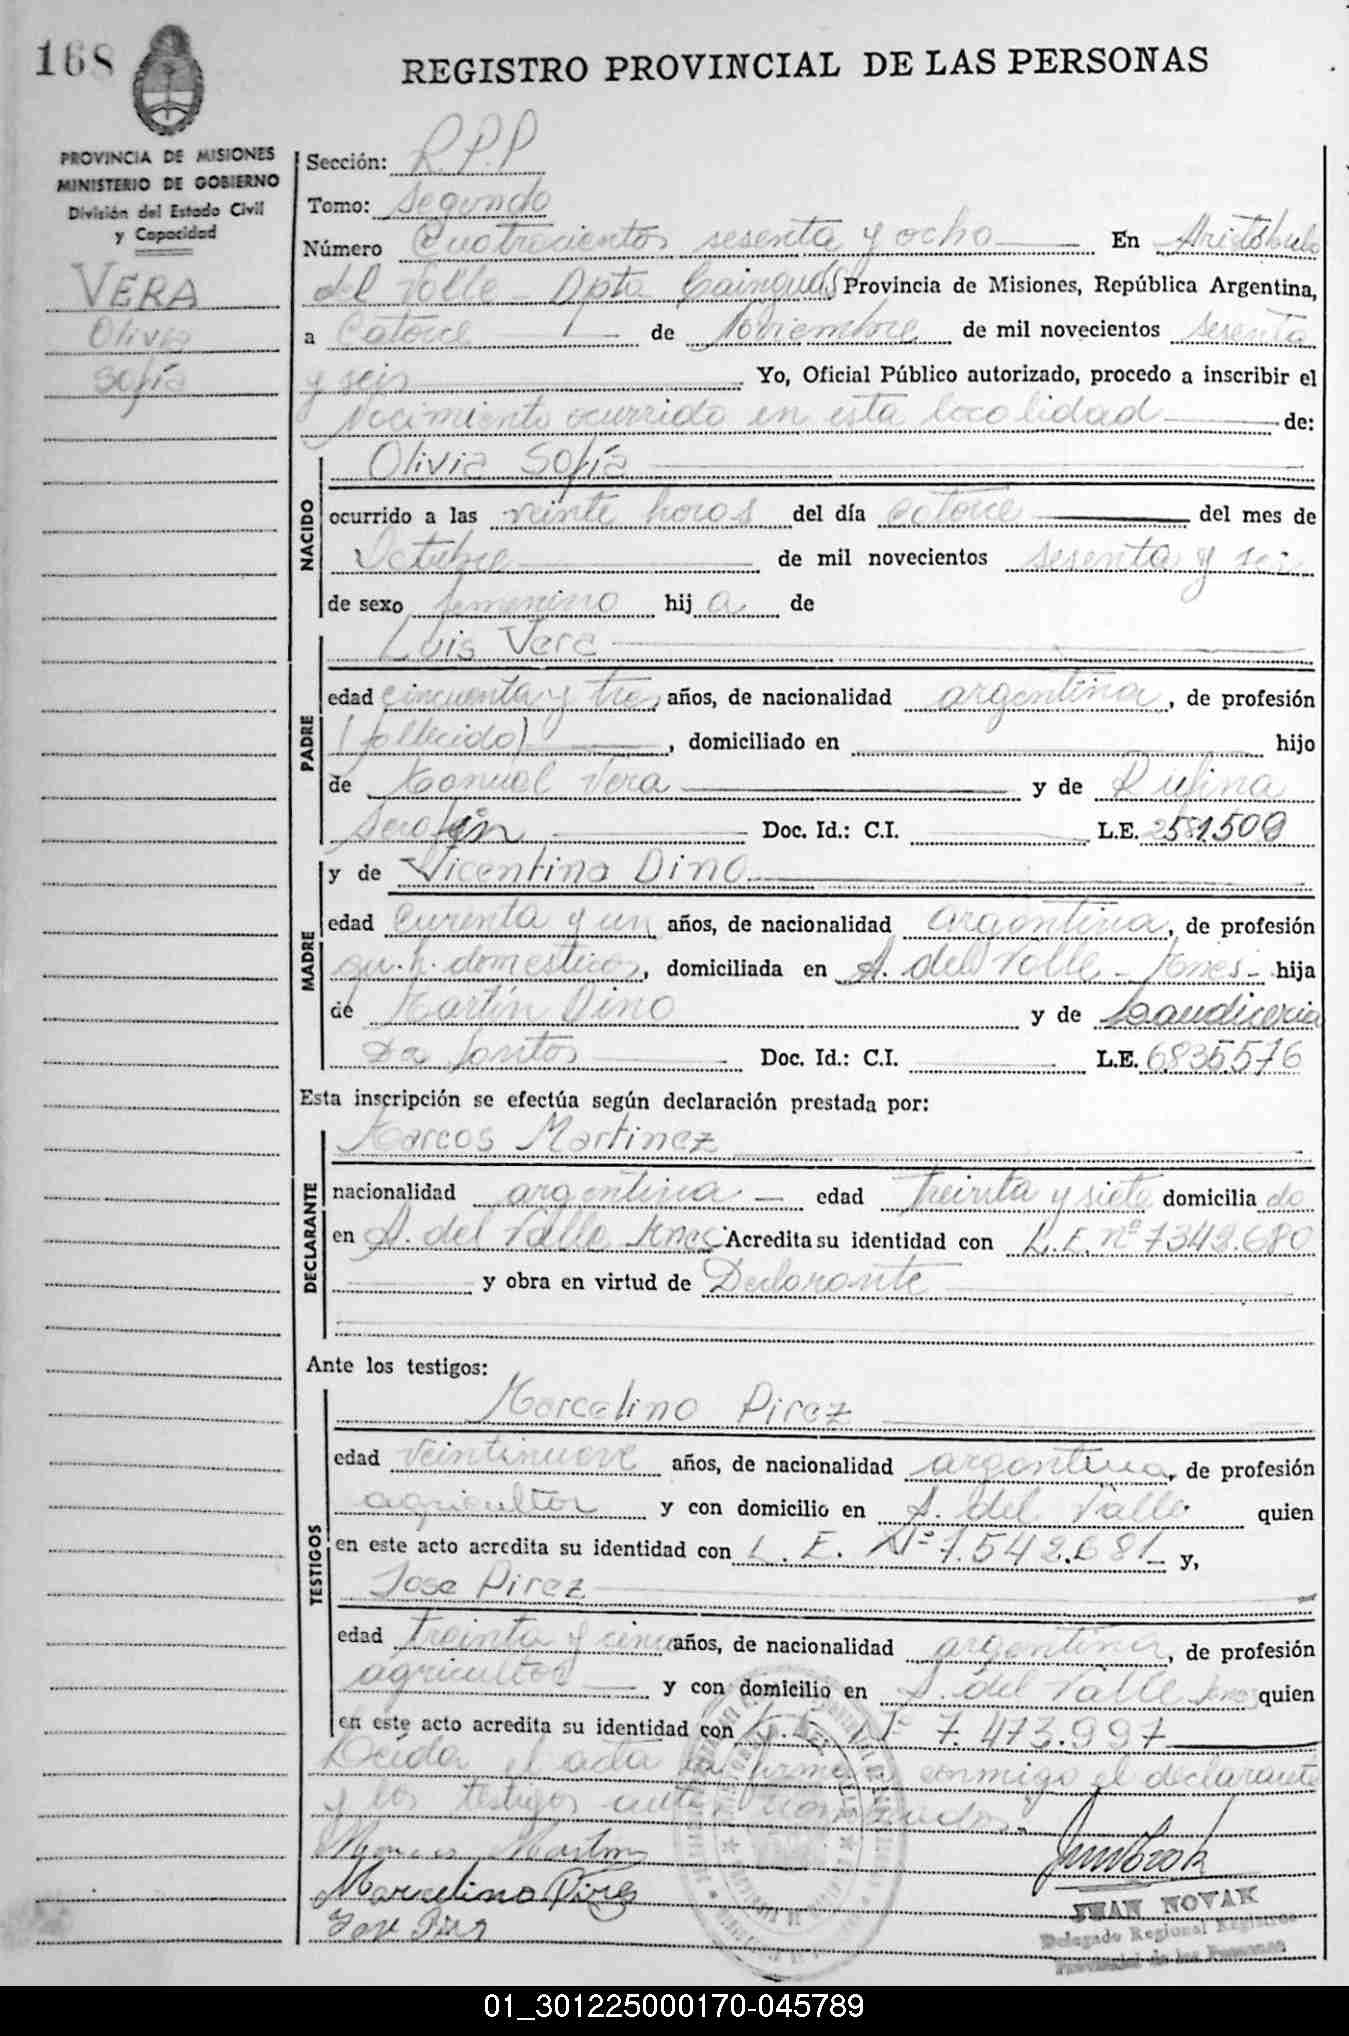 168
REGISTRO PROVINCIAL DE LAS PERSONAS
PROVINCIA DE MISIONES
MINISTERIO DE GOBIERNO
División del Estado Civil
y Capacidad
VERA
Olivia
Sofía
Sección: R.P.P
Tomo: Segundo
Número Cuatrocientos sesenta y ocho En Aristóbulo
del Valle - Dpto Cainguás Provincia de Misiones, República Argentina,
a Catorce de Noviembre de mil novecientos sesenta
y seis Yo, Oficial Público autorizado, procedo a inscribir el
Nacimiento ocurrido en esta localidad de:
NACIDO
Olivia Sofía
ocurrido a las veinte horas del día catorce del mes de
Octubre de mil novecientos sesenta y seis
de sexo femenino hij a de
PADRE
Luis Vera
edad cincuenta y tres años, de nacionalidad argentina, de profesión
(fallecido), domiciliado en hijo
de Manuel Vera y de Rufina
Serafin Doc. Id.: C.I. L.E. 2581.509
MADRE
y de Vicentina Dino
edad curenta y un años, de nacionalidad argentina, de profesión
qu. h. domesticos, domiciliada en A. del Valle - Mnes - hija
de Martín Dino y de Laudiceria
Da Santos Doc. Id.: C.I. L.E. 6835576
Esta inscripción se efectúa según declaración prestada por:
DECLARANTE
Marcos Martinez
nacionalidad argentina - edad treinta y siete domicilia do
en A. del Valle Mnes Acredita su identidad con L.E. nº 7342.680
y obra en virtud de Declarante
Ante los testigos:
TESTIGOS
Marcelino Pirez
edad veintinueve años, de nacionalidad argentina, de profesión
agricultor y con domicilio en A. del Valle quien
en este acto acredita su identidad con L. E. Nº 7.542.681 y,
Jose Pirez
edad treinta y cinco años, de nacionalidad argentina, de profesión
agricultor y con domicilio en A. del Valle Mnes quien
en este acto acredita su identidad con L.E. Nº 7.473.997
Leida el acta la firman conmigo el declarante
y los testigos antes nombrados.
Marcos Martinez
Marcelino Pires
Jose Pires
JUAN NOVAK
Delegado Regional Registro
Provincial de las Personas
01_301225000170-045789